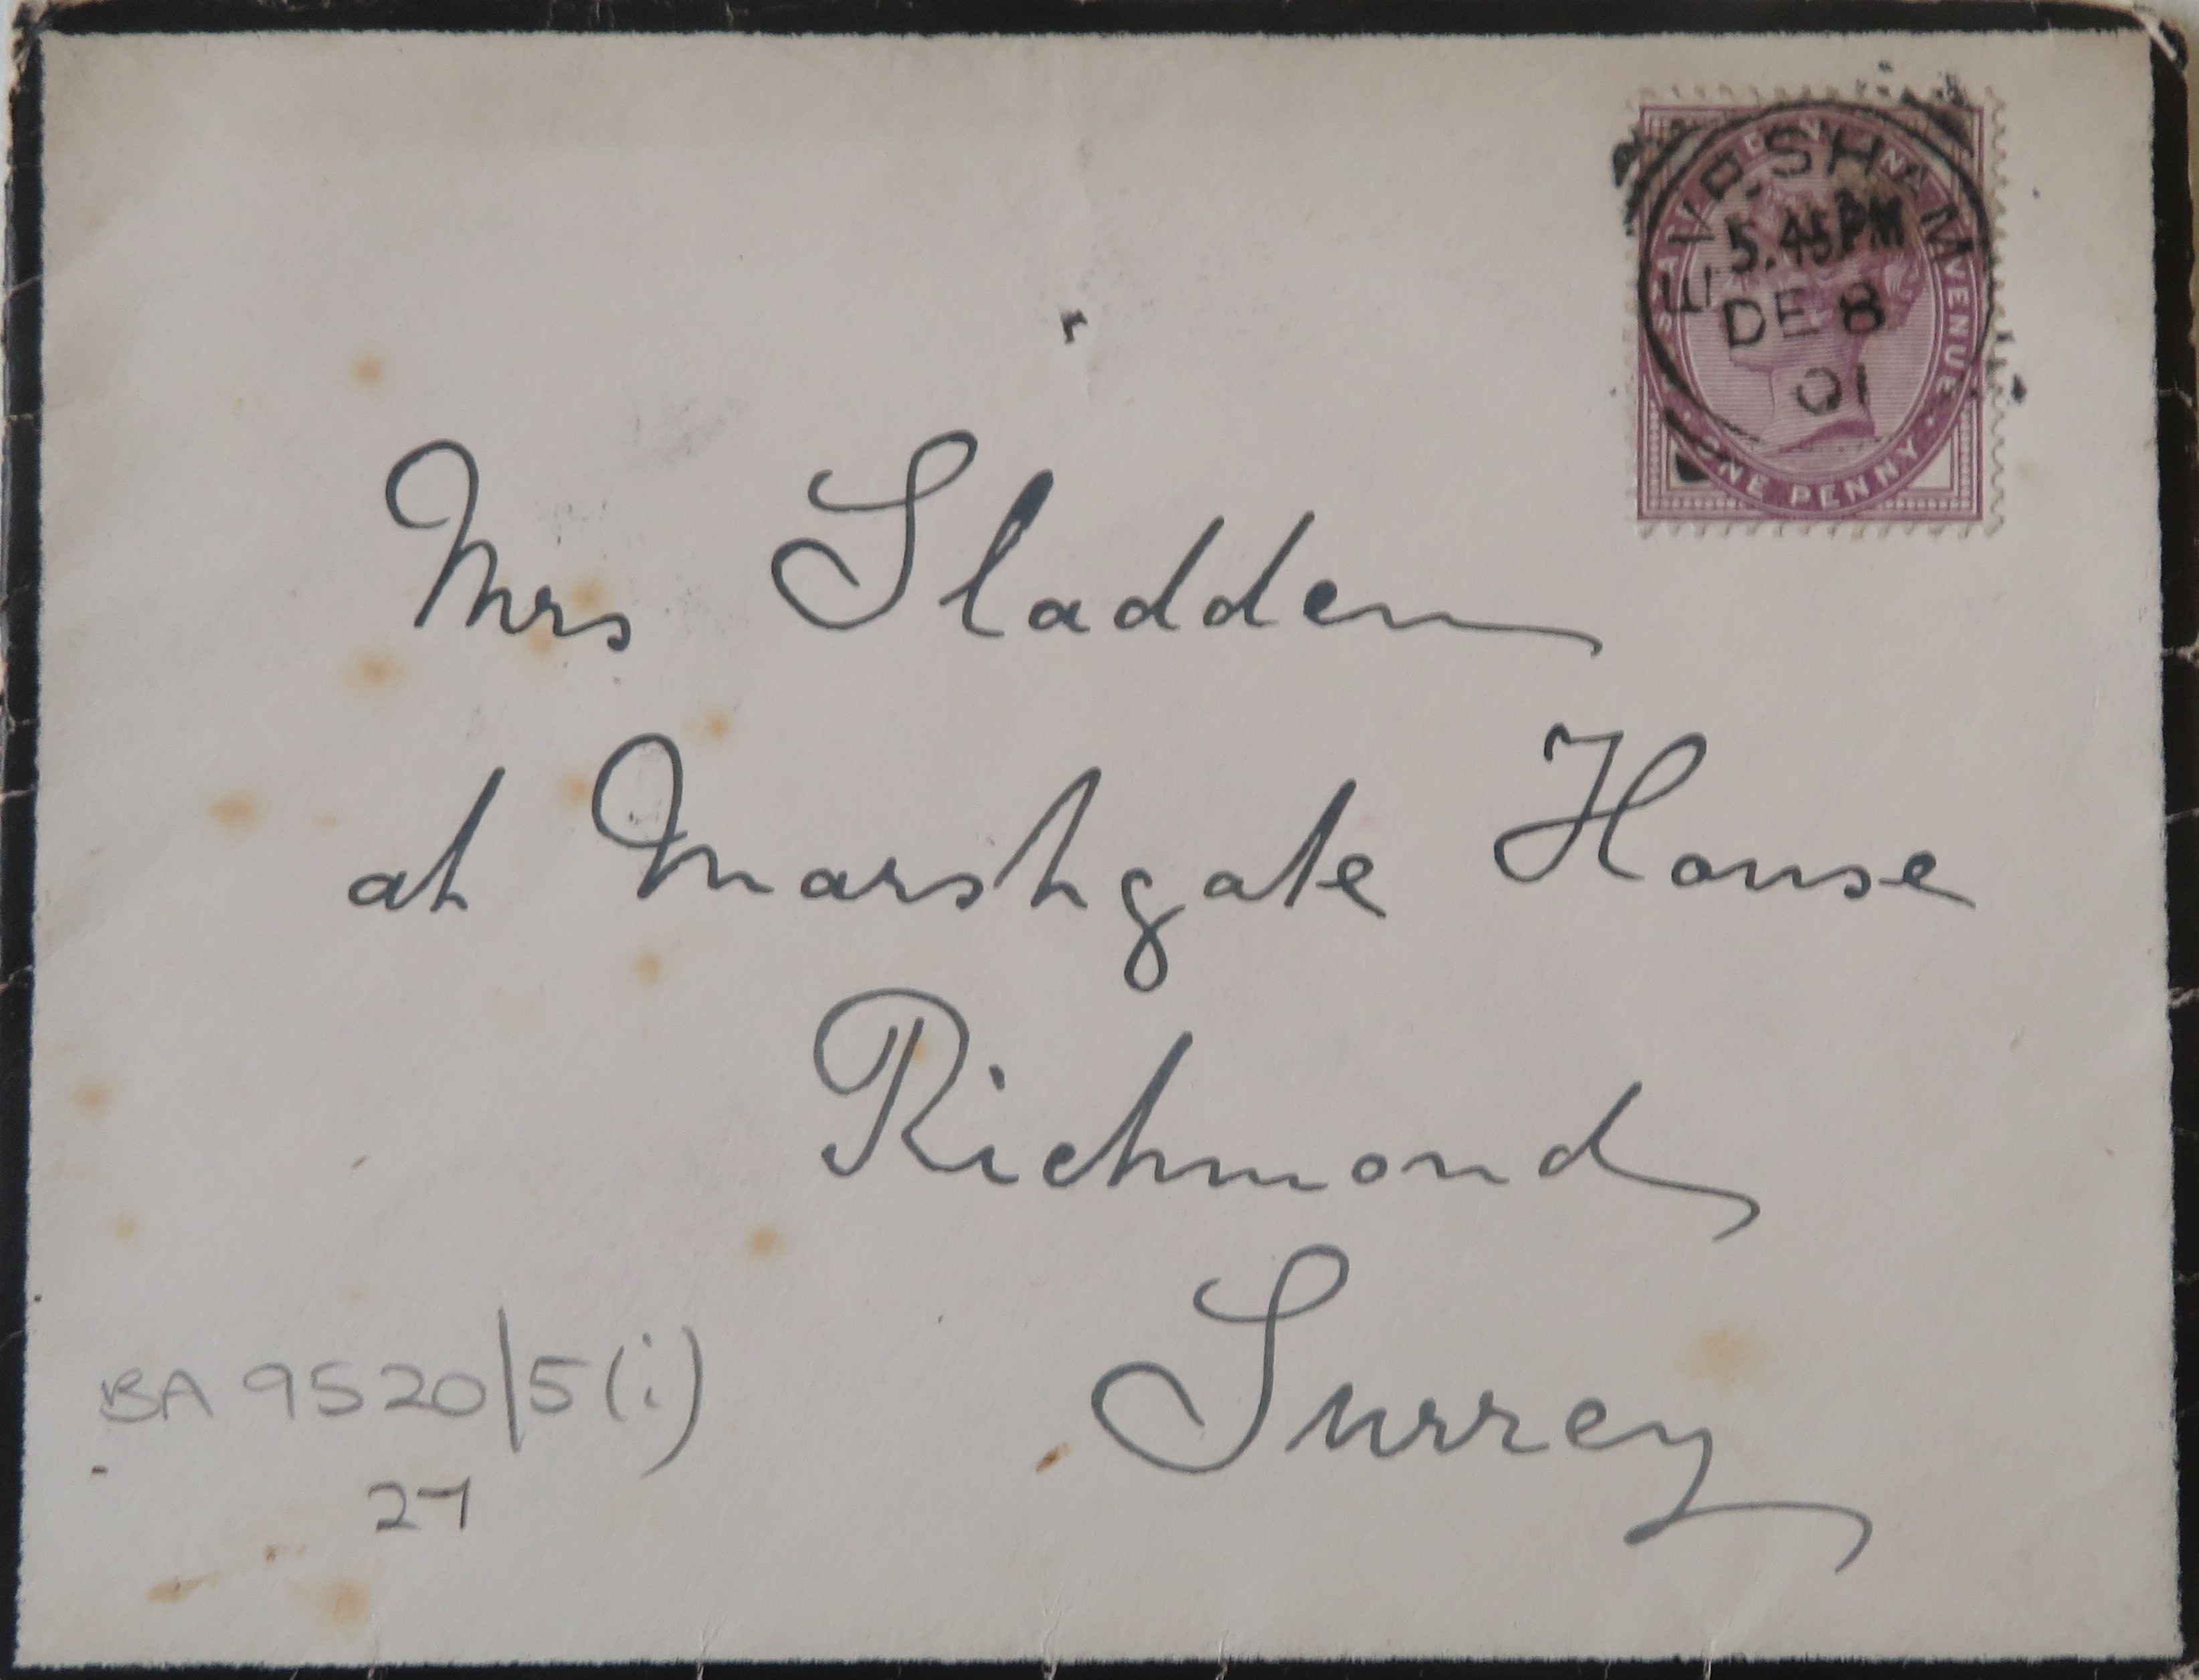 EVESHAM
5.45PM
DE 8
01
ONE PENNY
Mrs Sladden
at Marshgate House
Richmond
Surrey
BA 9520/5(i)
27